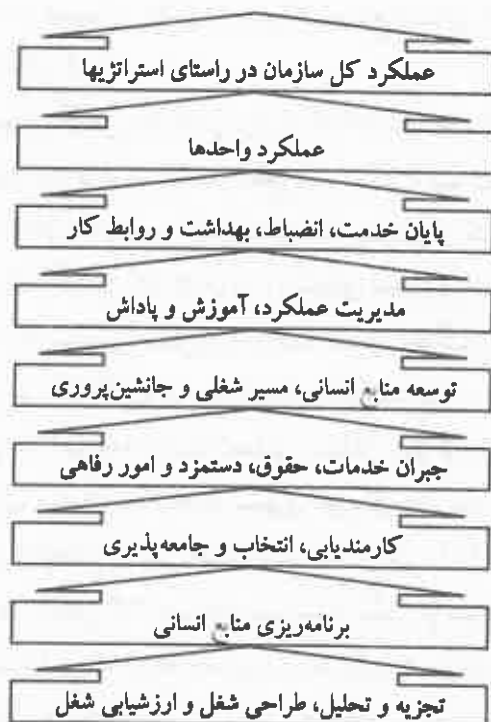 عملکرد کل سازمان در راستای استراتژیها
عملکرد واحدها
پایان خدمت، انضباط، بهداشت و روابط کار
مدیریت عملکرد، آموزش و پاداش
توسعه منابع انسانی، مسیر شغلی و جانشین‌پروری
جبران خدمات، حقوق، دستمزد و امور رفاهی
کارمندیابی، انتخاب و جامعه‌پذیری
برنامه‌ریزی منابع انسانی
تجزیه و تحلیل، طراحی شغل و ارزشیابی شغل